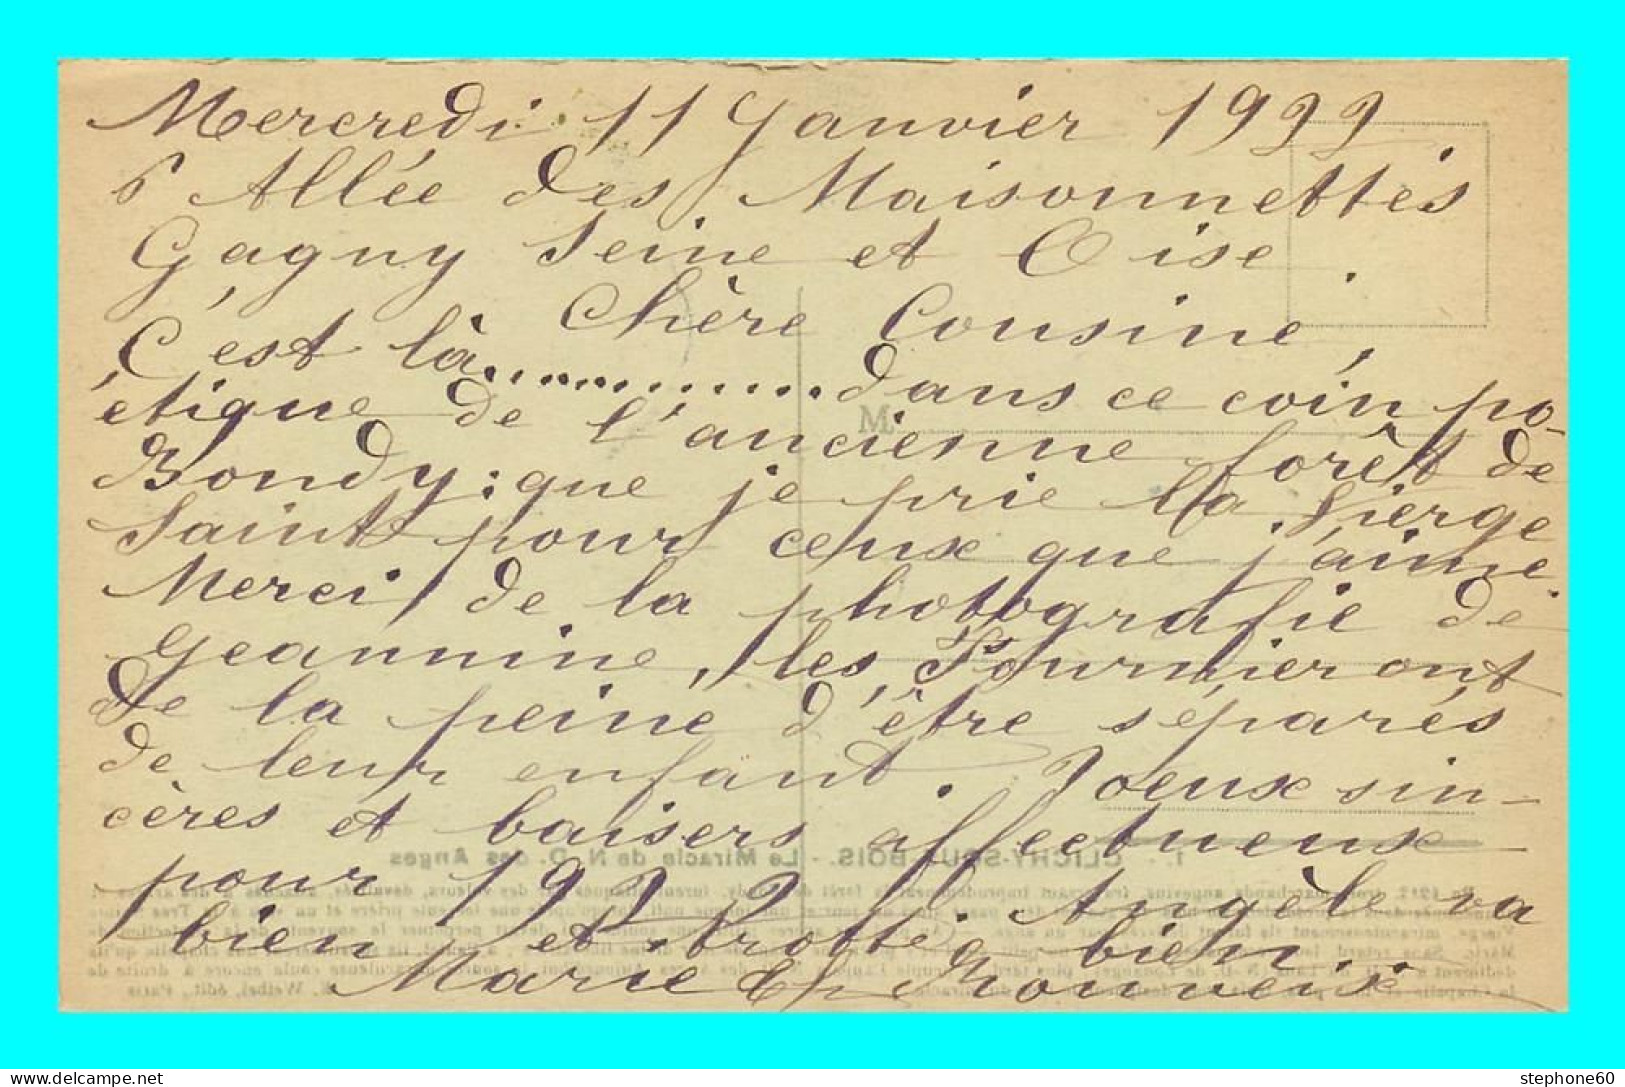 Mercredi 11 Janvier 1922.
6 Allée des Maisonnettes
Gagny Seine et Oise.
Chère Cousine,
C'est là............dans ce coin po-
étique de l'ancienne forêt de
Bondy; que je prie la Vierge
Saint pour ceux que j'aime.
Merci de la photografie de
Geannine, les Fournier ont
de la peine d'être séparés
de leur enfant. Voeux sin-
cères et baisers affectueux
pour 1922. Angèle va
bien et trotte bien.
Marie
M.
1. - CLICHY-SOUS-BOIS. - Le Miracle de N.-D. des Anges
E. Weibel, édit., Paris
stephone60